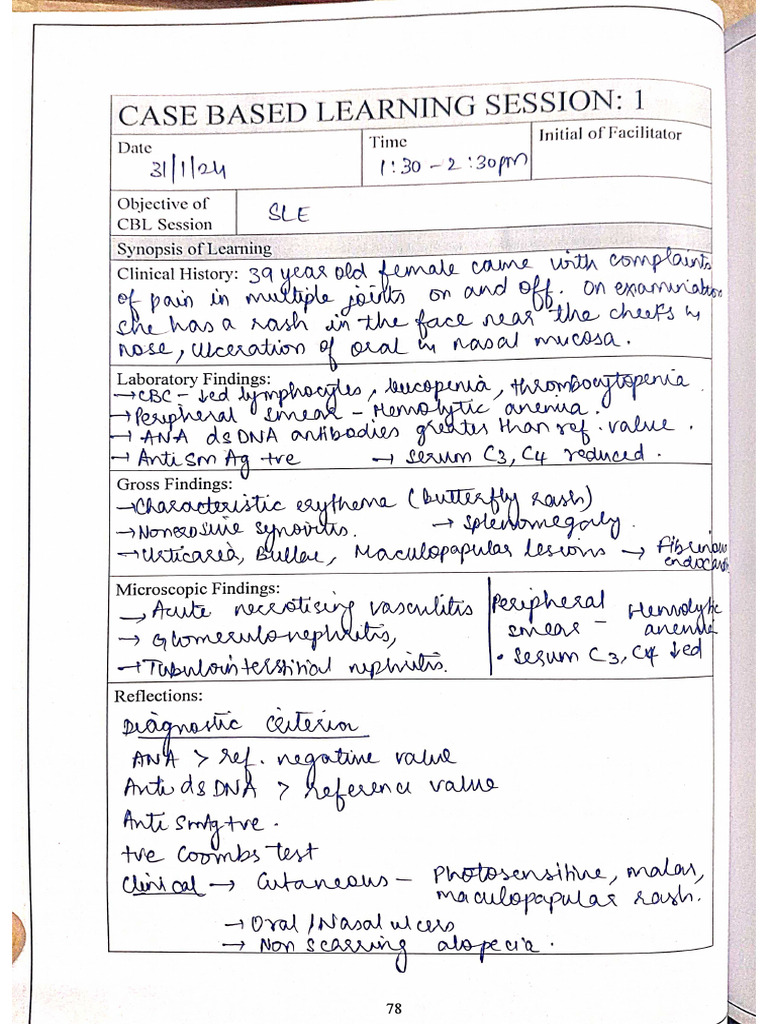 CASE BASED LEARNING SESSION: 1
Date
31/1/24
Time
1:30 - 2:30pm
Initial of Facilitator
Objective of
CBL Session
SLE
Synopsis of Learning
Clinical History: 39 year old female came with complaints
of pain in multiple joints on and off. On examination
she has a rash in the face near the cheeks &
nose, ulceration of oral & nasal mucosa.
Laboratory Findings:
→ CBC - ↓ed lymphocytes, leucopenia, thrombocytopenia.
→ Peripheral smear - Hemolytic anemia.
→ ANA dsDNA antibodies greater than ref. value.
→ Anti Sm Ag +ve → Serum C3, C4 reduced.
Gross Findings:
→ Characteristic erythema (butterfly rash)
→ Nonerosive synovitis. → Splenomegaly.
→ Urticaria, Bullae, Maculopapular lesions → Fibrinous
Microscopic Findings:
→ Acute necrotising vasculitis
→ Glomerulonephritis,
→ Tubulointerstitial nephritis.
Peripheral
smear - Hemolytic
anemia
• Serum C3, C4 ↓ed
Reflections:
Diagnostic Criterion
ANA > ref. negative value
Anti dsDNA > reference value
Anti SmAg +ve.
+ve Coombs test
Clinical → Cutaneous - Photosensitive, malar,
maculopapular rash.
→ Oral/Nasal ulcers
→ Non scarring alopecia.
78